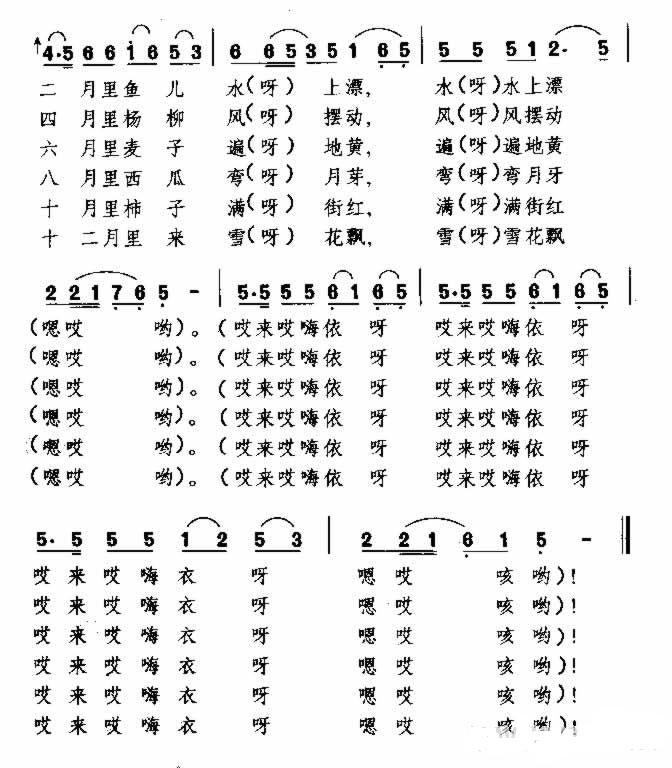 4·5 6 6 1 6 5 3 | 6 6 5 3 5 1 6 5 | 5 5 5 1 2· 5
二 月里鱼 儿 水(呀) 上漂, 水(呀)水上漂
四 月里杨 柳 风(呀) 摆动, 风(呀)风摆动
六 月里麦 子 遍(呀) 地黄, 遍(呀)遍地黄
八 月里西 瓜 弯(呀) 月芽, 弯(呀)弯月牙
十 月里柿 子 满(呀) 街红, 满(呀)满街红
十 二月里 来 雪(呀) 花飘, 雪(呀)雪花飘
2 2 1 7 6 5 - | 5·5 5 5 6 1 6 5 | 5·5 5 5 6 1 6 5 |
(嗯哎 哟)。(哎来哎嗨依 呀 哎来哎嗨依 呀
(嗯哎 哟)。(哎来哎嗨依 呀 哎来哎嗨依 呀
(嗯哎 哟)。(哎来哎嗨依 呀 哎来哎嗨依 呀
(嗯哎 哟)。(哎来哎嗨依 呀 哎来哎嗨依 呀
(嗯哎 哟)。(哎来哎嗨依 呀 哎来哎嗨依 呀
(嗯哎 哟)。(哎来哎嗨依 呀 哎来哎嗨依 呀
5· 5 5 5 1 2 5 3 | 2 2 1 6 1 5 - ‖
哎 来 哎 嗨 衣 呀 嗯 哎 咳 哟)!
哎 来 哎 嗨 衣 呀 嗯 哎 咳 哟)!
哎 来 哎 嗨 衣 呀 嗯 哎 咳 哟)!
哎 来 哎 嗨 衣 呀 嗯 哎 咳 哟)!
哎 来 哎 嗨 衣 呀 嗯 哎 咳 哟)!
哎 来 哎 嗨 衣 呀 嗯 哎 咳 哟)!